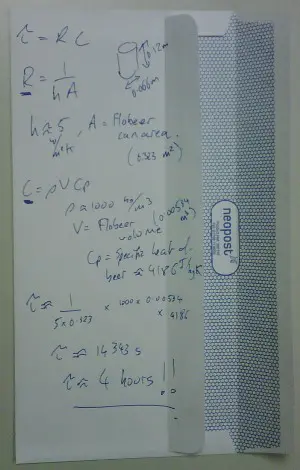 τ = R C
0.12m
0.066m
R = 1/hA
h ≈ 5 W/m²K, A = Area of beer can area.
(0.323 m²)
C = ρVCp
ρ ≈ 1000 kg/m³
V = of beer volume (0.00534 m³)
Cp = Specific heat of
beer ≈ 4186 J/kgK
τ ≈ 1/(5 x 0.323) x 1000 x 0.00534
x 4186
τ ≈ 14343 s
τ ≈ 4 hours!!
neopost